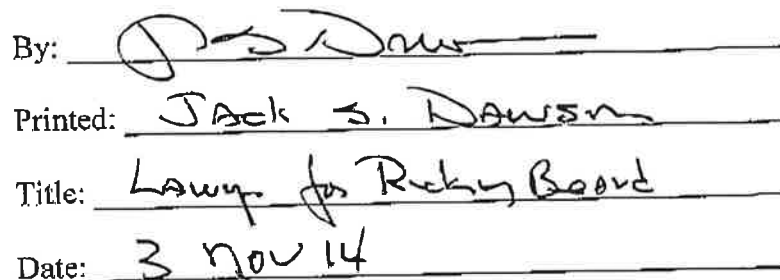 By:
Printed: Jack S. Dawson
Title: Lawyer for Board
Date: 3 Nov 14